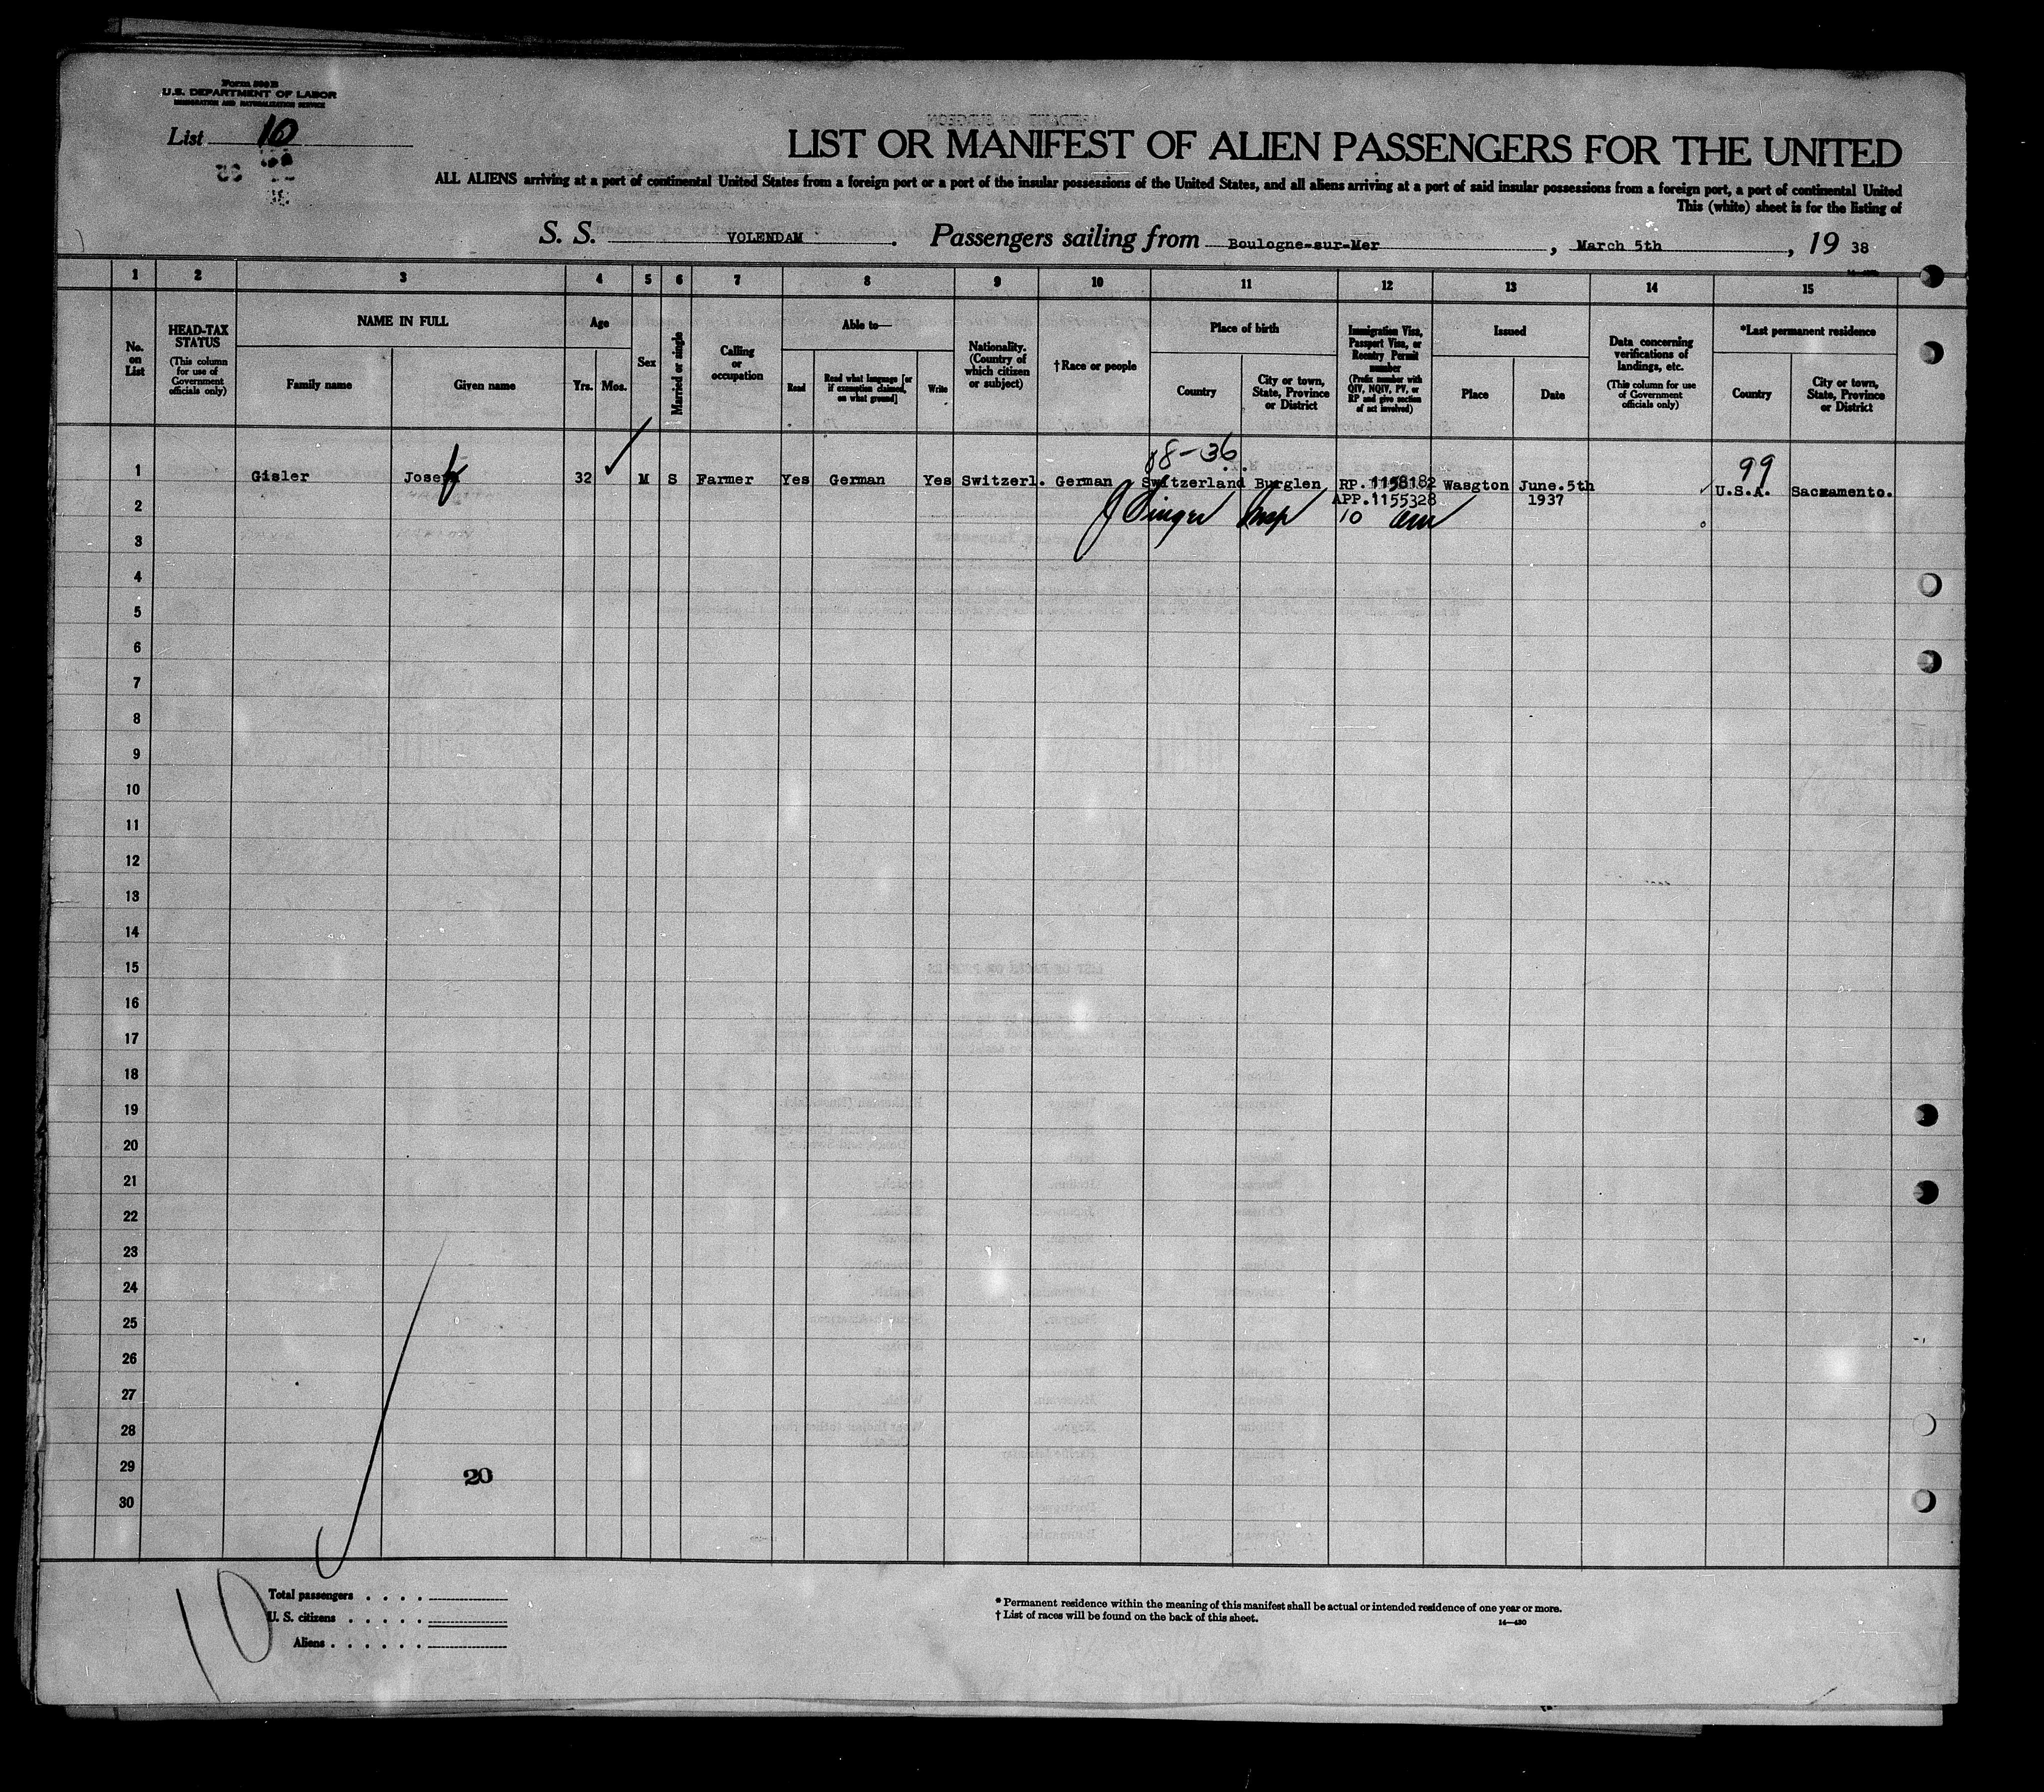 Form 500 B
U.S. DEPARTMENT OF LABOR
IMMIGRATION AND NATURALIZATION SERVICE
List 10
LIST OR MANIFEST OF ALIEN PASSENGERS FOR THE UNITED
ALL ALIENS arriving at a port of continental United States from a foreign port or a port of the insular possessions of the United States, and all aliens arriving at a port of said insular possessions from a foreign port, a port of continental United
This (white) sheet is for the listing of
S. S. VOLENDAM. Passengers sailing from Boulogne-sur-Mer, March 5th, 19 38
1 2 3 4 5 6 7 8 9 10 11 12 13 14 15
No. on List
HEAD-TAX STATUS (This column for use of Government officials only)
NAME IN FULL
Family name
Given name
Age
Yrs.
Mos.
Sex
Married or single
Calling or occupation
Able to—
Read
Read what language [or if exemption claimed, on what ground]
Write
Nationality. (Country of which citizen or subject)
†Race or people
Place of birth
Country
City or town, State, Province or District
Immigration Visa, Passport Visa, or Reentry Permit number (Prefix number with QIV, NQIV, PV, or RP and give section of act involved)
Issued
Place
Date
Data concerning verifications of landings, etc. (This column for use of Government officials only)
*Last permanent residence
Country
City or town, State, Province or District
88-36
99
1 Gisler Josef 32 M S Farmer Yes German Yes Switzerl. German Switzerland Burglen RP. 1158182 Wasgton June.5th U.S.A. Sacramento.
APP.1155328 1937
2 Singer Insp 10 am
3
4
5
6
7
8
9
10
11
12
13
14
15
16
17
18
19
20
21
22
23
24
25
26
27
28
29
20
30
10
Total passengers . . . .
U. S. citizens . . . . .
Aliens . . . . . .
* Permanent residence within the meaning of this manifest shall be actual or intended residence of one year or more.
† List of races will be found on the back of this sheet.
14—430